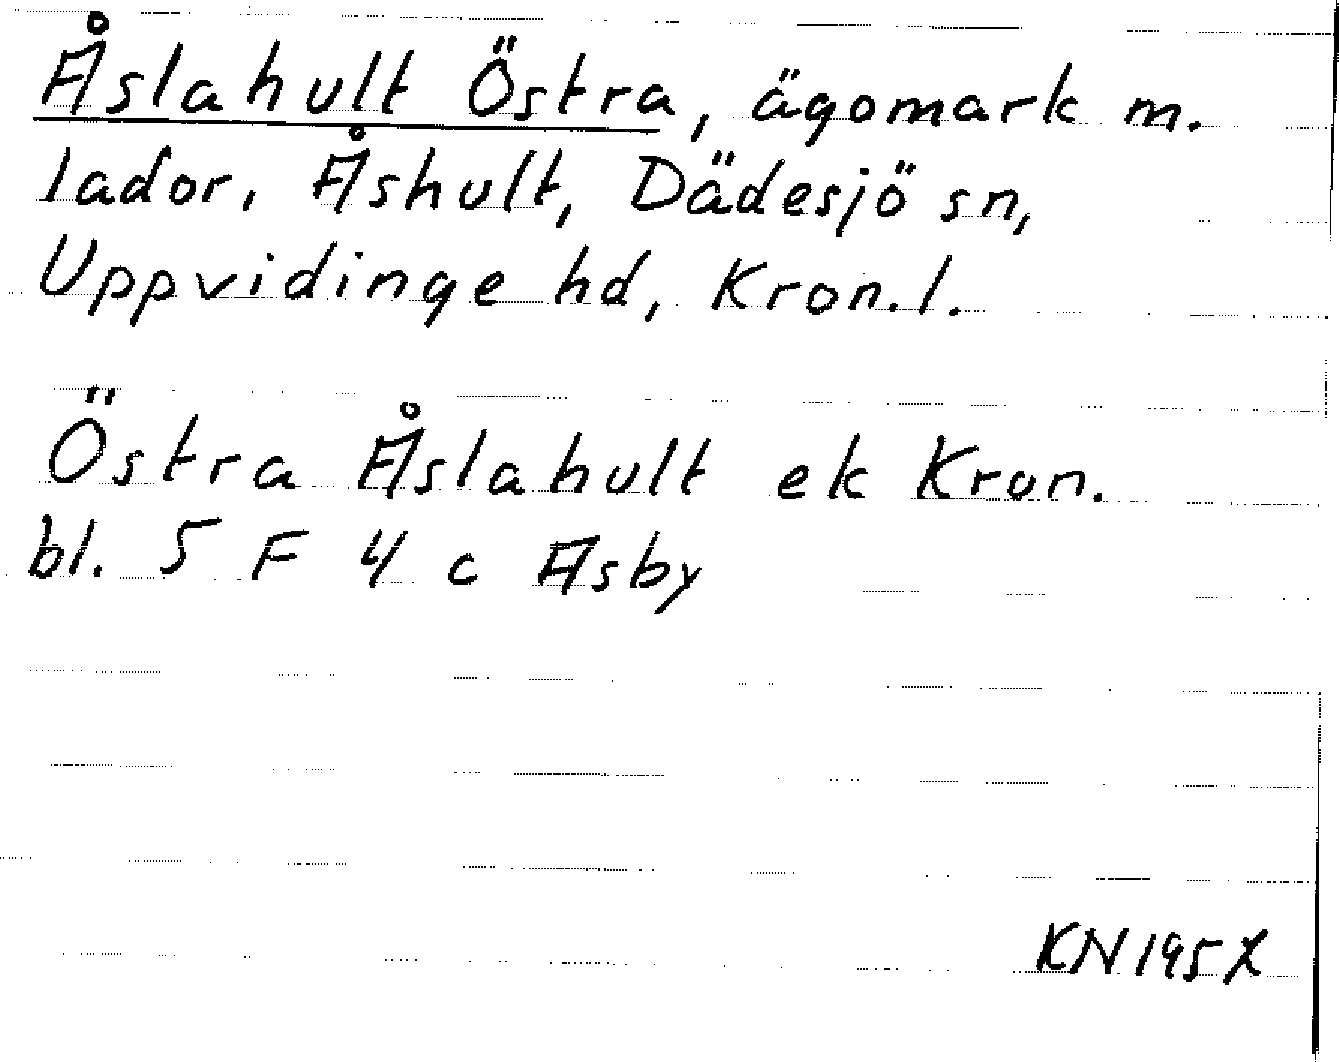 Åslahult Östra, ägomark m.
lador, Åshult, Dädesjö sn,
Uppvidinge hd, Kron.l.
Östra Åslahult ek Kron.
bl. 5 F 4 c Asby